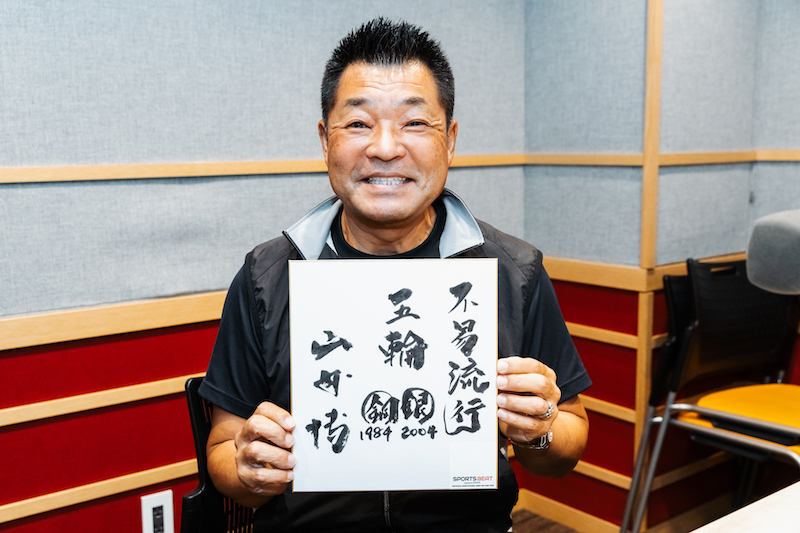 不易流行
五輪
銅 銀
1984 2004
山本博
SPORTS BEAT